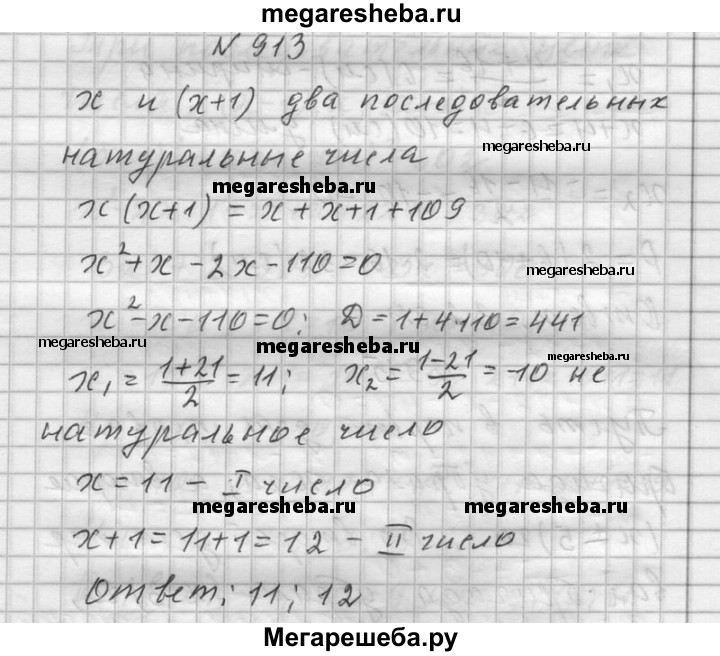 megaresheba.ru
N 913
x и (x+1) два последовательных
megaresheba.ru
натуральные числа
megaresheba.ru
x(x+1) = x+x+1+109
x²+x-2x-110=0
megaresheba.ru
x²-x-110=0; Д=1+4·110=441
megaresheba.ru megaresheba.ru
x₁ = (1+21)/2 = 11; x₂ = (1-21)/2 = -10 не
megaresheba.ru
натуральное число
x=11 - I число
megaresheba.ru megaresheba.ru
x+1=11+1=12 - II число
Ответ: 11; 12
Мегарешеба.ру